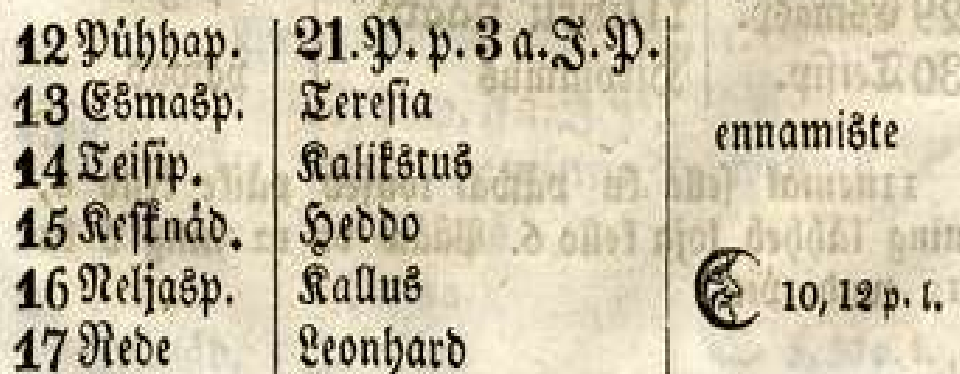 12 Pühhap. 21. P. p. 3 a. J. P.
13 Esmasp. Teresia
ennamiste
14 Teisip. Kalikstus
15 Kesknäd. Heddo
16 Neljasp. Kallus 10, 12 p. l.
17 Rede Leonhard